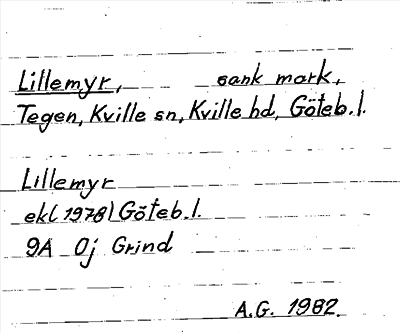 Lillemyr, sank mark,
Tegen, Kville sn, Kville hd, Göteb. l.
Lillemyr
ekl 1978) Göteb. l.
9A Oj Grind
A.G. 1982.